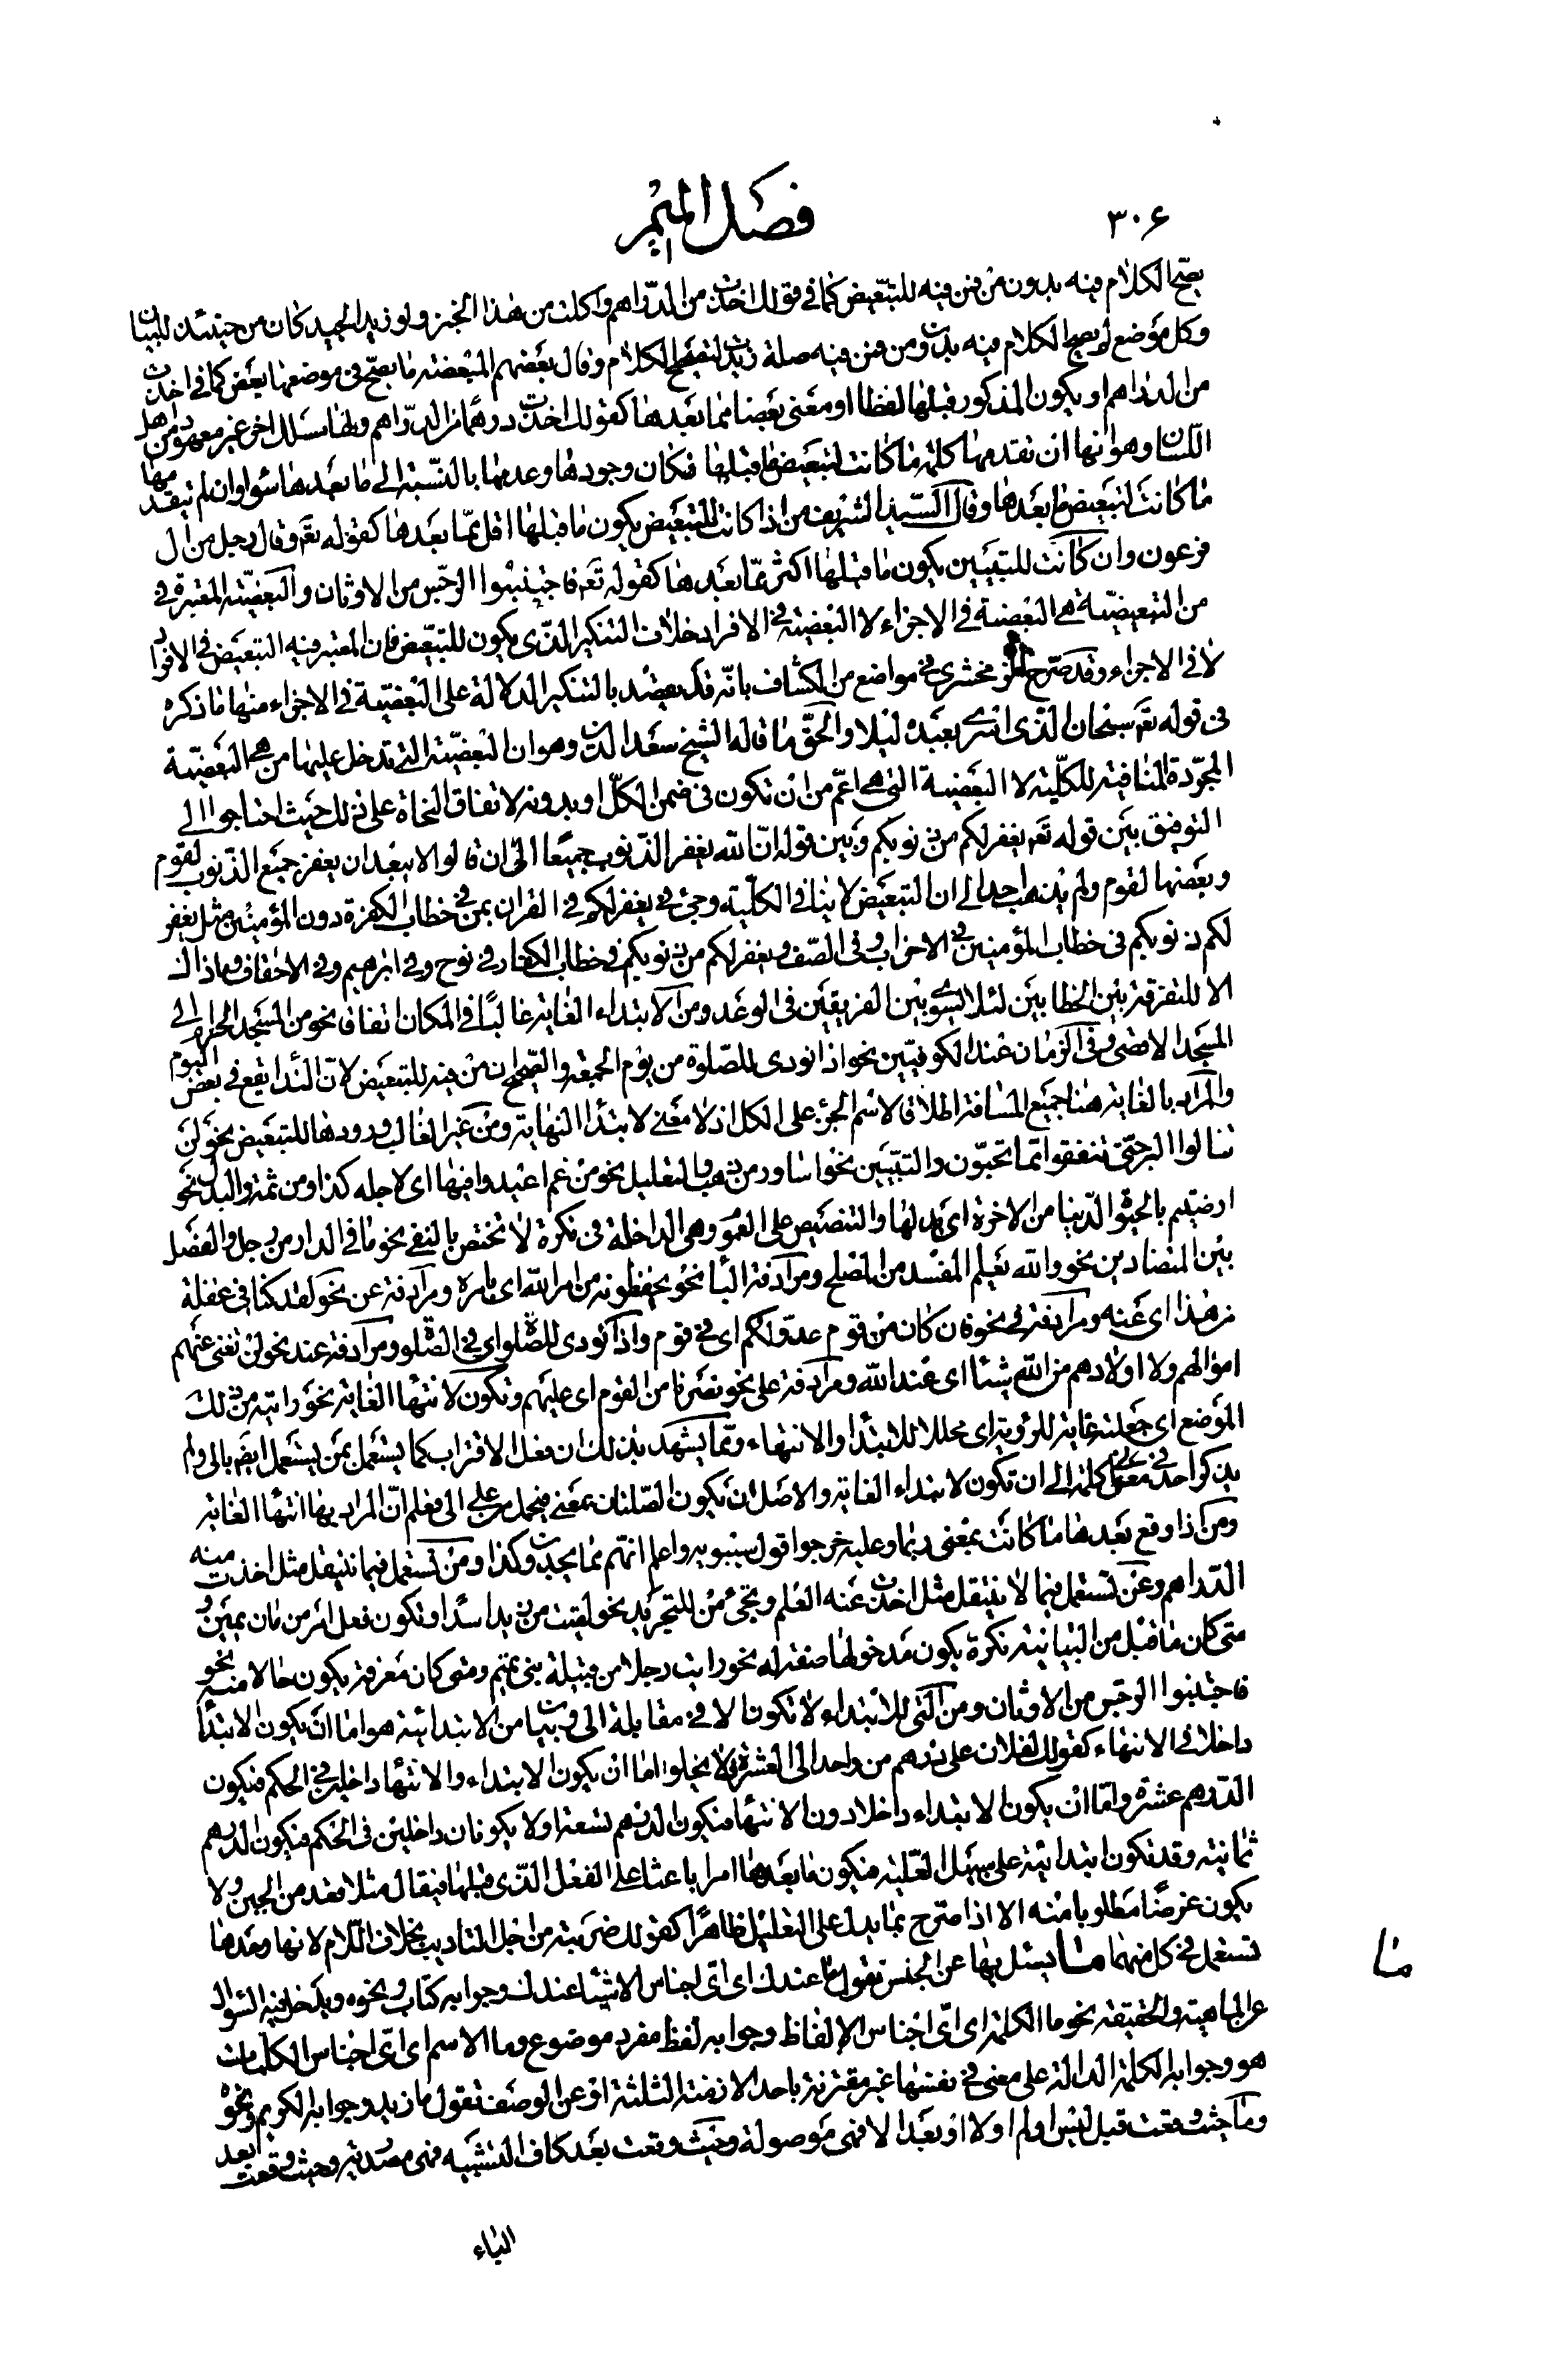 ٣٠۶
فصل الميم
يصح الكلام فيه بدون من فمن فيه للتبعيض كما فى قولك اخذت من الدراهم واكلت من هذا الخبز ولو زيد الجيد كان من حينئذ للبيان
وكل موضع لم يصح الكلام فيه بدون من فمن فيه صلة زيدت لتصحيح الكلام وقال بعضهم المبعضة ما يصح فى موضعها بعض كما فى اخذت
من الدراهم او يكون المذكور قبلها لفظا او معنى بعضا مما بعدها كقولك اخذت درهما من الدراهم ولها مسلك اخر غير معهود من اهل
اللسان وهو انها ان تقدمها كلمة ما كانت لتبعيض ما قبلها فكان وجودها وعدمها بالنسبة الى ما بعدها سواء وان لم تتقدمها
ما كانت لتبعيض ما بعدها وقال السيد الشريف من اذا كانت للتبعيض يكون ما قبلها اقل مما بعدها كقوله تع وقال رجل من ال
فرعون وان كانت للتبيين يكون ما قبلها اكثر مما بعدها كقوله تع فاجتنبوا الرجس من الاوثان والبعضية المعتبرة فى
من التبعيضية هى البعضية فى الاجزاء لا البعضية فى الافراد خلاف التنكير الذى يكون للتبعيض فان المعتبر فيه التبعيض فى الافراد
لا فى الاجزاء وقد صرح الزمخشرى فى مواضع من الكشاف بانه قد يقصد بالتنكير الدلالة على البعضية فى الاجزاء منها ما ذكره
فى قوله تع سبحان الذى اسرى بعبده ليلا والحق ما قاله الشيخ سعد الدين وهو ان البعضية التى تدخل عليها من هى البعضية
المجردة المنافية للكلية لا البعضية التى هى اعم من ان تكون فى ضمن الكل او بدونه لاتفاق النحاة على ذلك حيث احتاجوا الى
التوفيق بين قوله تع يغفر لكم من ذنوبكم وبين قوله ان الله يغفر الذنوب جميعا الى ان قالوا لا يبعد ان يغفر جميع الذنوب لقوم
وبعضها لقوم ولم يذهب احد الى ان التبعيض لا ينافى الكلية وجئ فى يغفر لكم فى القران بمن فى خطاب الكفرة دون المؤمنين مثل يغفر
لكم ذنوبكم فى خطاب المؤمنين فى الاحزاب وفى الصف ويغفر لكم من ذنوبكم فى خطاب الكفار فى نوح وفى ابرهيم وفى الاحقاف وما ذاك
الا للتفرقة بين الخطابين لئلا يسوى بين الفريقين فى الوعد ومن لابتداء الغاية غالبا فى المكان اتفاقا نحو من المسجد الحرام الى
المسجد الاقصى وفى الزمان عند الكوفيين نحو اذا نودى للصلوة من يوم الجمعة والصحيح ان من فيه للتبعيض لان النداء يقع فى بعض اليوم
والمراد بالغاية هنا جميع المسافة اطلاقا لاسم الجزء على الكل اذ لا معنى لابتداء النهاية ومن غير الغالب ورودها للتبعيض نحو لن
تنالوا البر حتى تنفقوا مما تحبون والتبيين نحو اساور من ذهب والتعليل نحو من غم اعيدوا فيها اى لاجله كذا ومن ثمة والبدل نحو
ارضيتم بالحيوة الدنيا من الاخرة اى بدلها والتنصيص على العموم وهى الداخلة فى نكرة لا تختص بالنفى نحو ما فى الدار من رجل والفصل
بين المتضادين نحو والله يعلم المفسد من المصلح ومرادفة الباء نحو يحفظونه من امر الله اى بامره ومرادفة عن نحو لقد كنا فى غفلة
من هذا اى عنه ومرادفة فى نحو فان كان من قوم عدو لكم اى فى قوم واذا نودى للصلوة اى فى الصلوة ومرادفة عند نحو لن تغنى عنهم
اموالهم ولا اولادهم من الله شيئا اى عند الله ومرادفة على نحو نصرنا من القوم اى عليهم وتكون لانتهاء الغاية نحو رايته من ذلك
الموضع اى جعلته غاية للرؤية اى محلا للابتداء والانتهاء ومما يشهد بذلك ان فعل الاقتراب كما يستعمل بمن يستعمل ايضا بالى ولم
يذكر احد فى معنى كلمة الى ان تكون لابتداء الغاية والاصل ان تكون الصلتان بمعنى فيحمل من على الى فعلم ان المراد بها انتهاء الغاية
ومن اذا وقع بعدها ما كانت بمعنى ربما وعليه خرجوا قول سيبويه واعلم انهم مما يحذفون كذا ومن تستعمل فيما ينتقل مثل اخذت منه
الدراهم وعن تستعمل فيما لا ينتقل مثل اخذت عنه العلم وتجئ من للتجريد نحو لقيت من زيد اسدا وتكون فعل امر من مان يمين و
متى كان ما قبل من البيانية نكرة يكون مدخولها صفة له نحو رايت رجلا من قبيلة بنى تميم ومتى كان معرفة يكون حالا منه نحو
فاجتنبوا الرجس من الاوثان ومن التى للابتداء لا تكون الا فى مقابلة الى وبيان من الابتدائية هو اما ان يكون الابتداء
داخلا فى الانتهاء كقولك لفلان على درهم من واحد الى العشرة فلا يخلوا اما ان يكون الابتداء والانتهاء داخلين فى الحكم فيكون
الدرهم عشرة واما ان يكون الابتداء داخلا دون الانتهاء فيكون الدرهم تسعة او لا يكونان داخلين فى الحكم فيكون الدرهم
ثمانية وقد تكون ابتدائية على سبيل العلية فيكون ما بعدها امرا باعثا على الفعل الذى قبلها فيقال مثلا قعد من الجبن ولا
يكون غرضا مطلوبا منه الا اذا صرح بما يدل على التعليل ظاهرا كقولك ضربته من اجل التاديب بخلاف اللام لانها وحدها
تستعمل فى كل منهما ما يسئل بها عن الجنس تقول ما عندك اى اى اجناس الاشياء عندك وجوابه كتاب ونحوه ويدخل فيه السؤال
عن الماهية والحقيقة نحو ما الكلمة اى اى اجناس الالفاظ وجوابه لفظ مفرد موضوع وما الاسم اى اى اجناس الكلمات
هو وجوابه الكلمة الدالة على معنى فى نفسها غير مقترنة باحد الازمنة الثلثة او عن الوصف تقول ما زيد وجوابه الكريم ونحوه
وما حيث وقعت قبل ليس او لم او لا او بعد الا فهى موصولة وحيث وقعت بعد كاف التشبيه فهى مصدرية وحيث وقعت بعد
ما
الباء